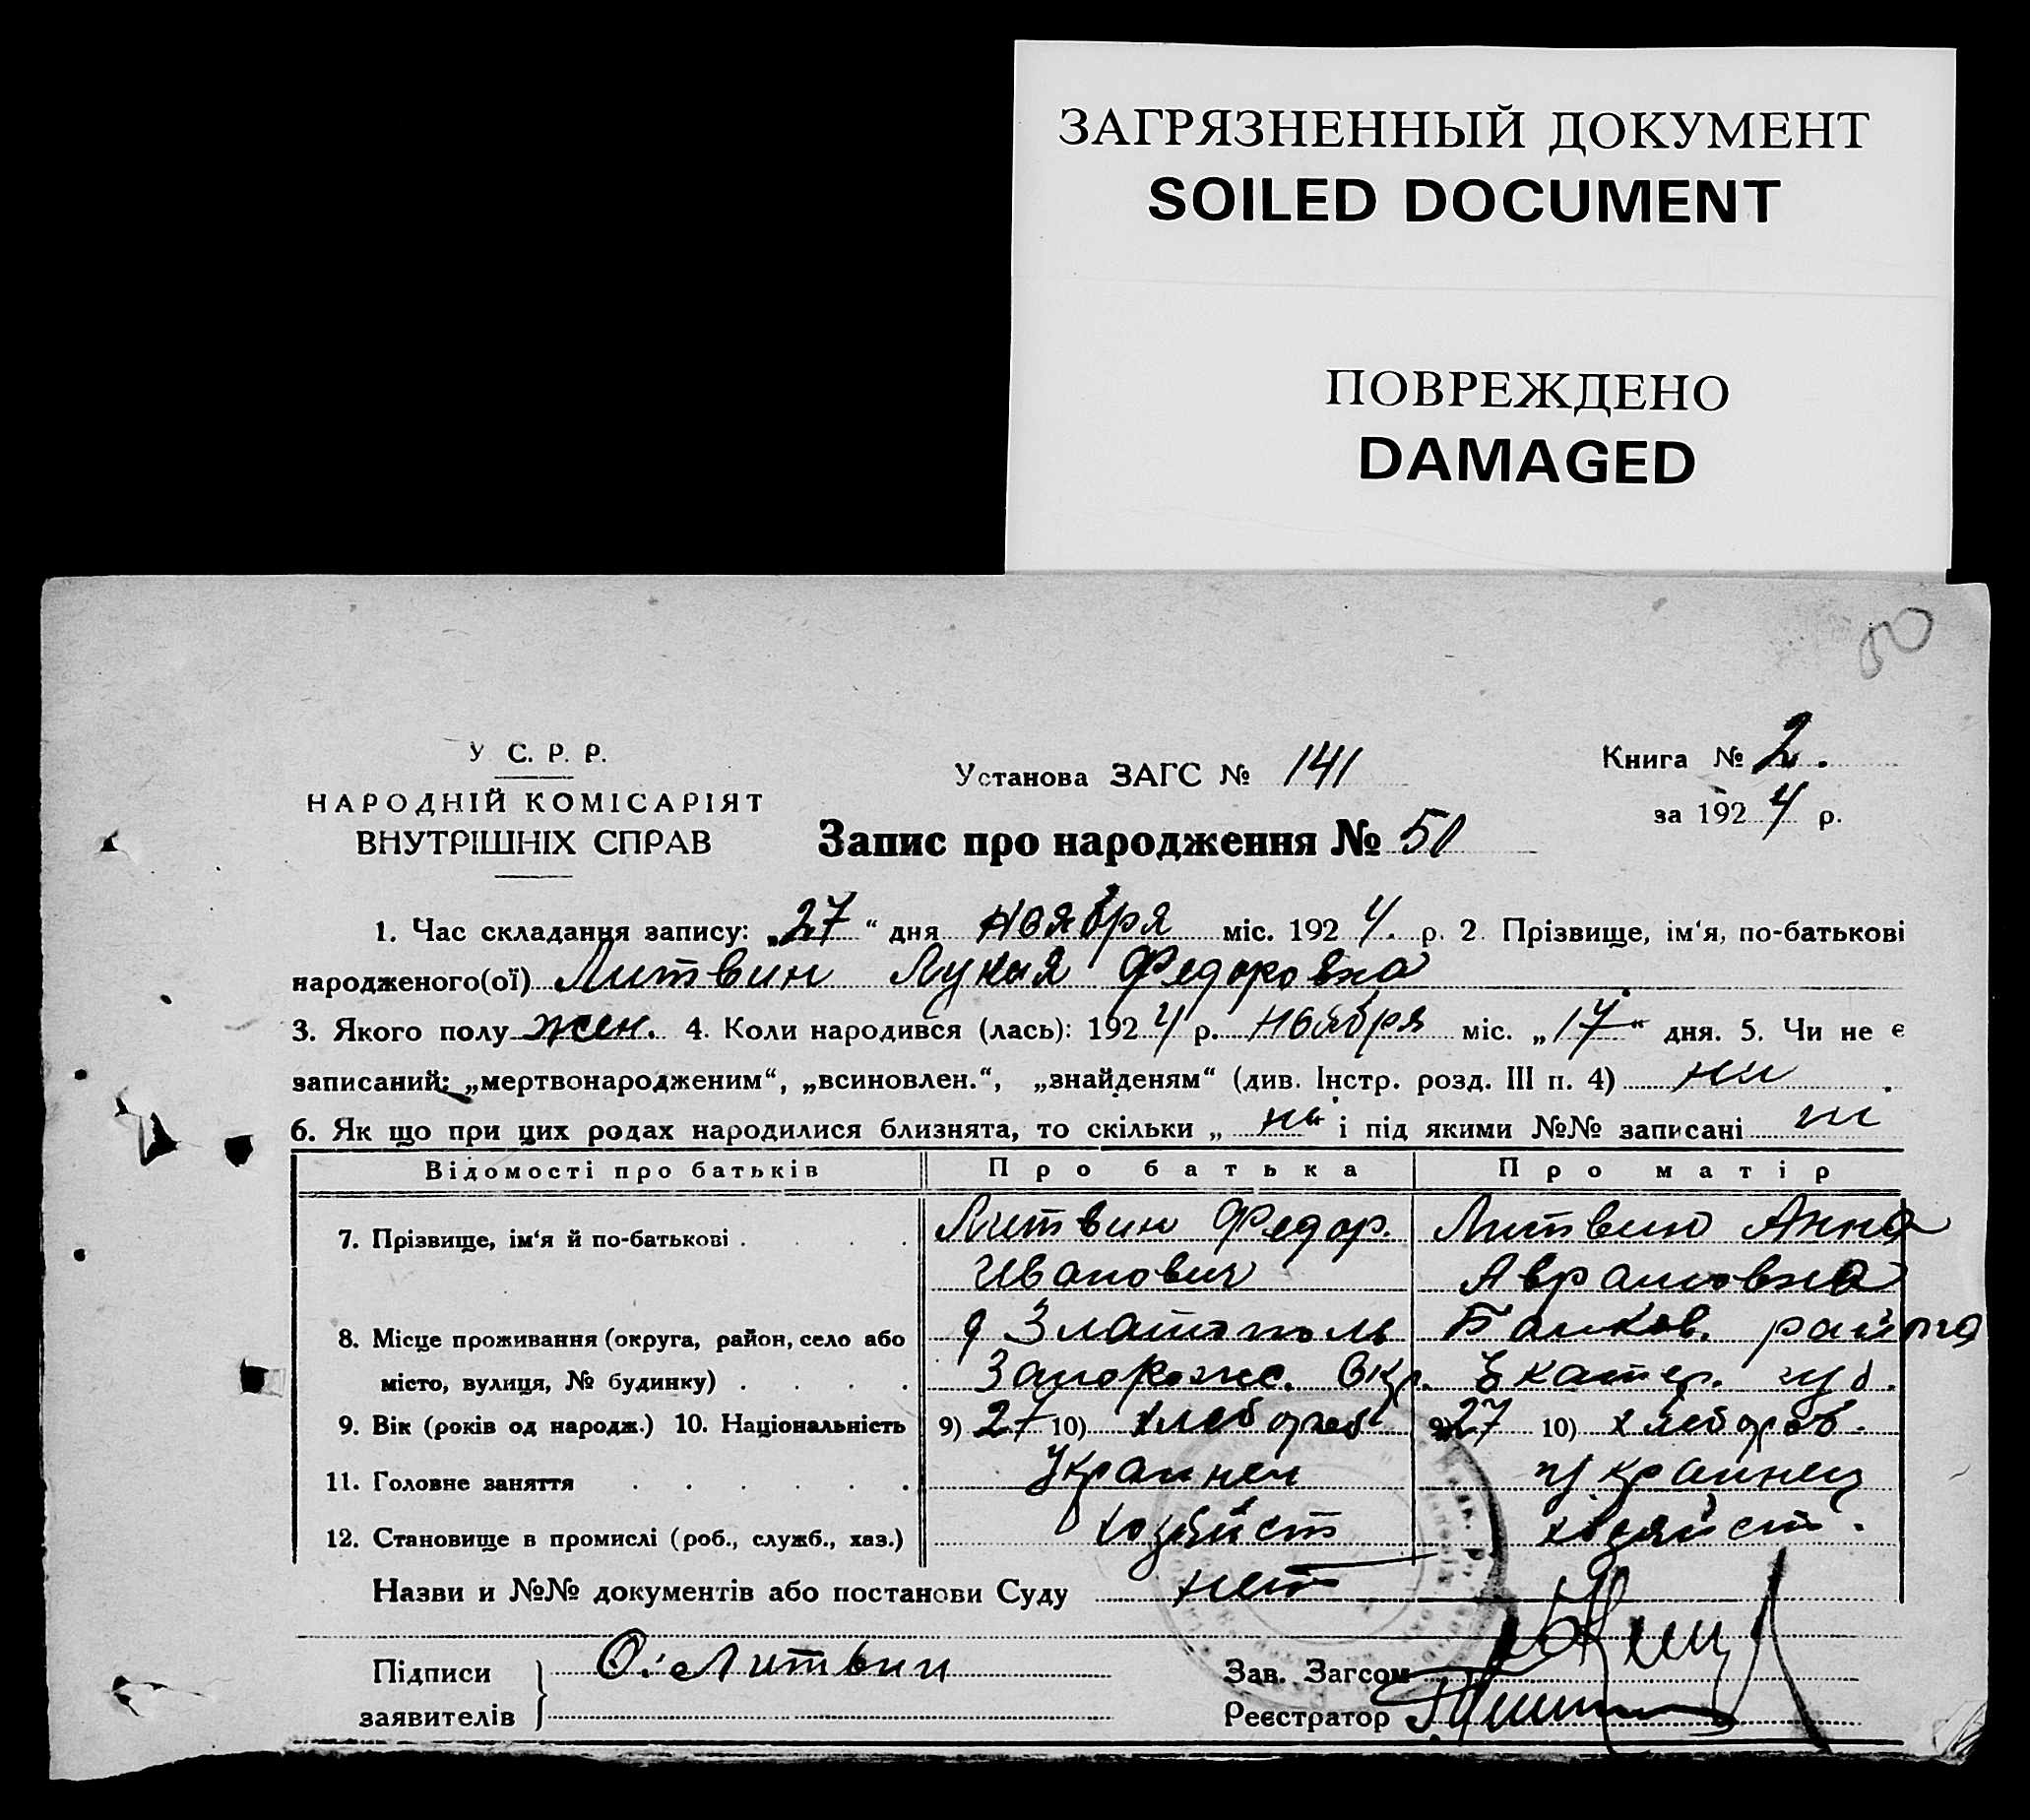 ЗАГРЯЗНЕННЫЙ ДОКУМЕНТ
SOILED DOCUMENT
ПОВРЕЖДЕНО
DAMAGED
50
У С. Р. Р.
НАРОДНІЙ КОМІСАРІЯТ
ВНУТРІШНІХ СПРАВ
Установа ЗАГС № 141
Книга № 2.
за 1924 р.
Запис про народження № 50
1. Час складання запису: „27“ дня ноября міс. 1924. р. 2. Прізвище, ім‘я, по-батькові
народженого(ої) Литвин Лукия Федоровна
3. Якого полу жен. 4. Коли народився (лась): 1924 р. ноября міс. „17“ дня. 5. Чи не є
записаний: „мертвонародженим“, „всиновлен.“, „знайденям“ (див. Інстр. розд. III п. 4)
6. Як що при цих родах народилися близнята, то скільки „ “ і під якими №№ записані
Відомості про батьків Про батька Про матір
7. Прізвище, ім‘я й по-батькові . . . . Литвин Федор. Литвин Анна
Иванович Аврамовна
8. Місце проживання (округа, район, село або Златополь района
місто, вулиця, № будинку) . . . . Запорожс. Окр. Екатер. губ.
9. Вік (років од народж.) 10. Національність 9) 27 10) хлебороб 9) 27 10) хлебороб.
11. Головне заняття . . . . . . Украинец украинец
12. Становище в промислі (роб., служб., хаз.) хозяйст хозяйст.
Назви и №№ документів або постанови Суду нет
Підписи О. Литвин Зав. Загсом
заявителів Реєстратор